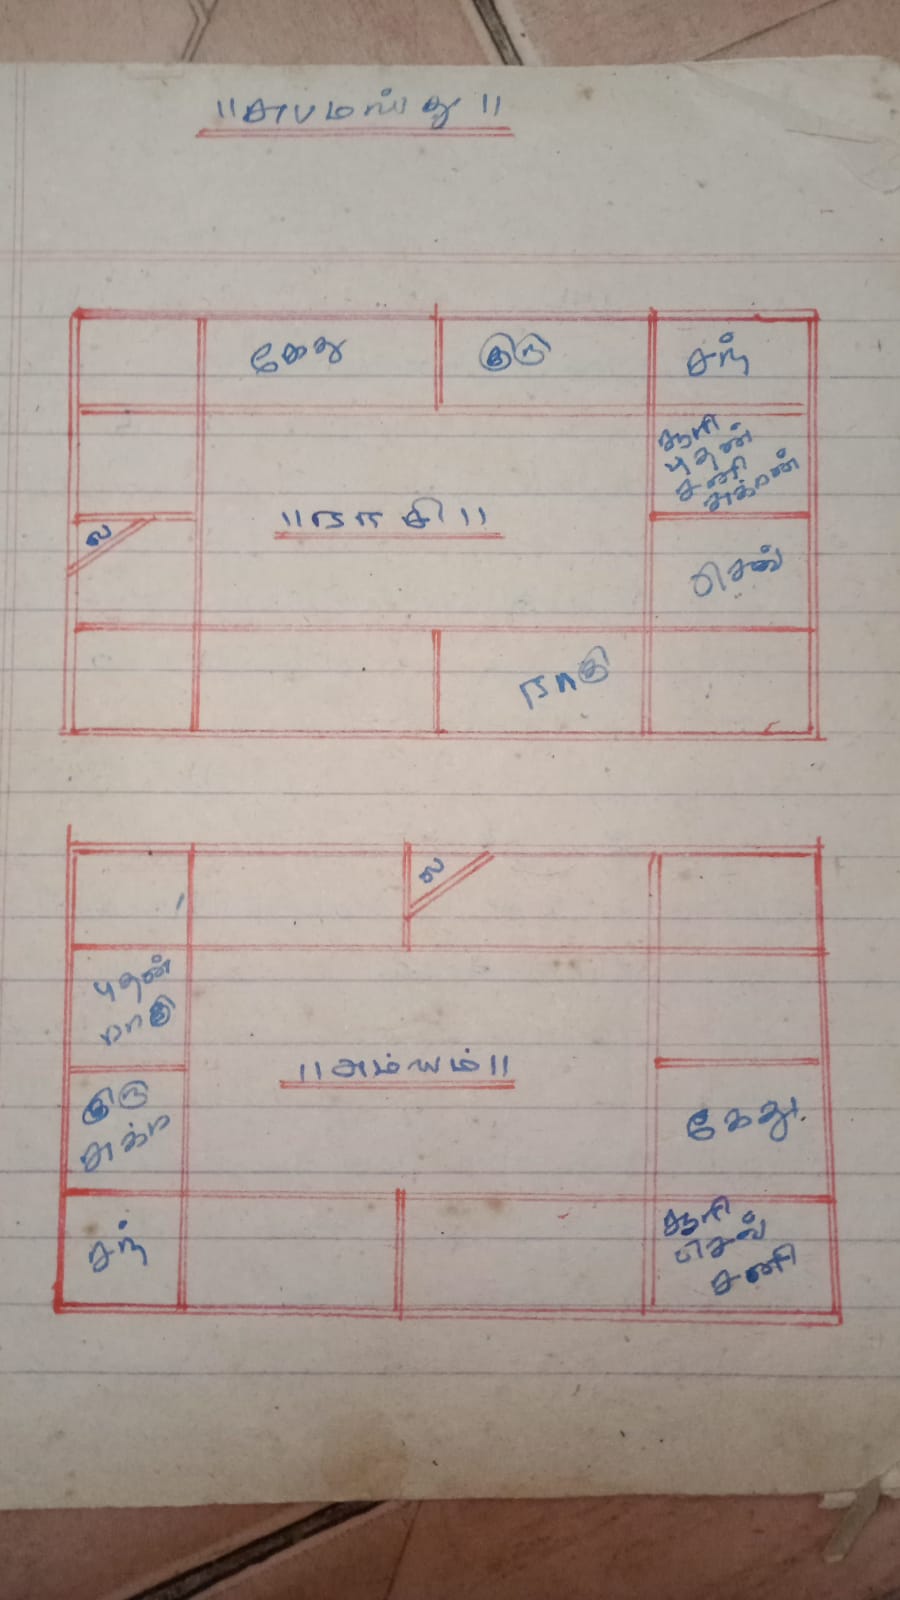 ||சுபமஸ்து||
கேது குரு சந்
சூரி
புதன்
சனி
சுக்ரன்
ல ||ராசி||
செவ்
ராகு
ல
புதன்
ராகு
||அம்ஸம்||
குரு
சுக்ர
கேது
சந்
சூரி
செவ்
சனி